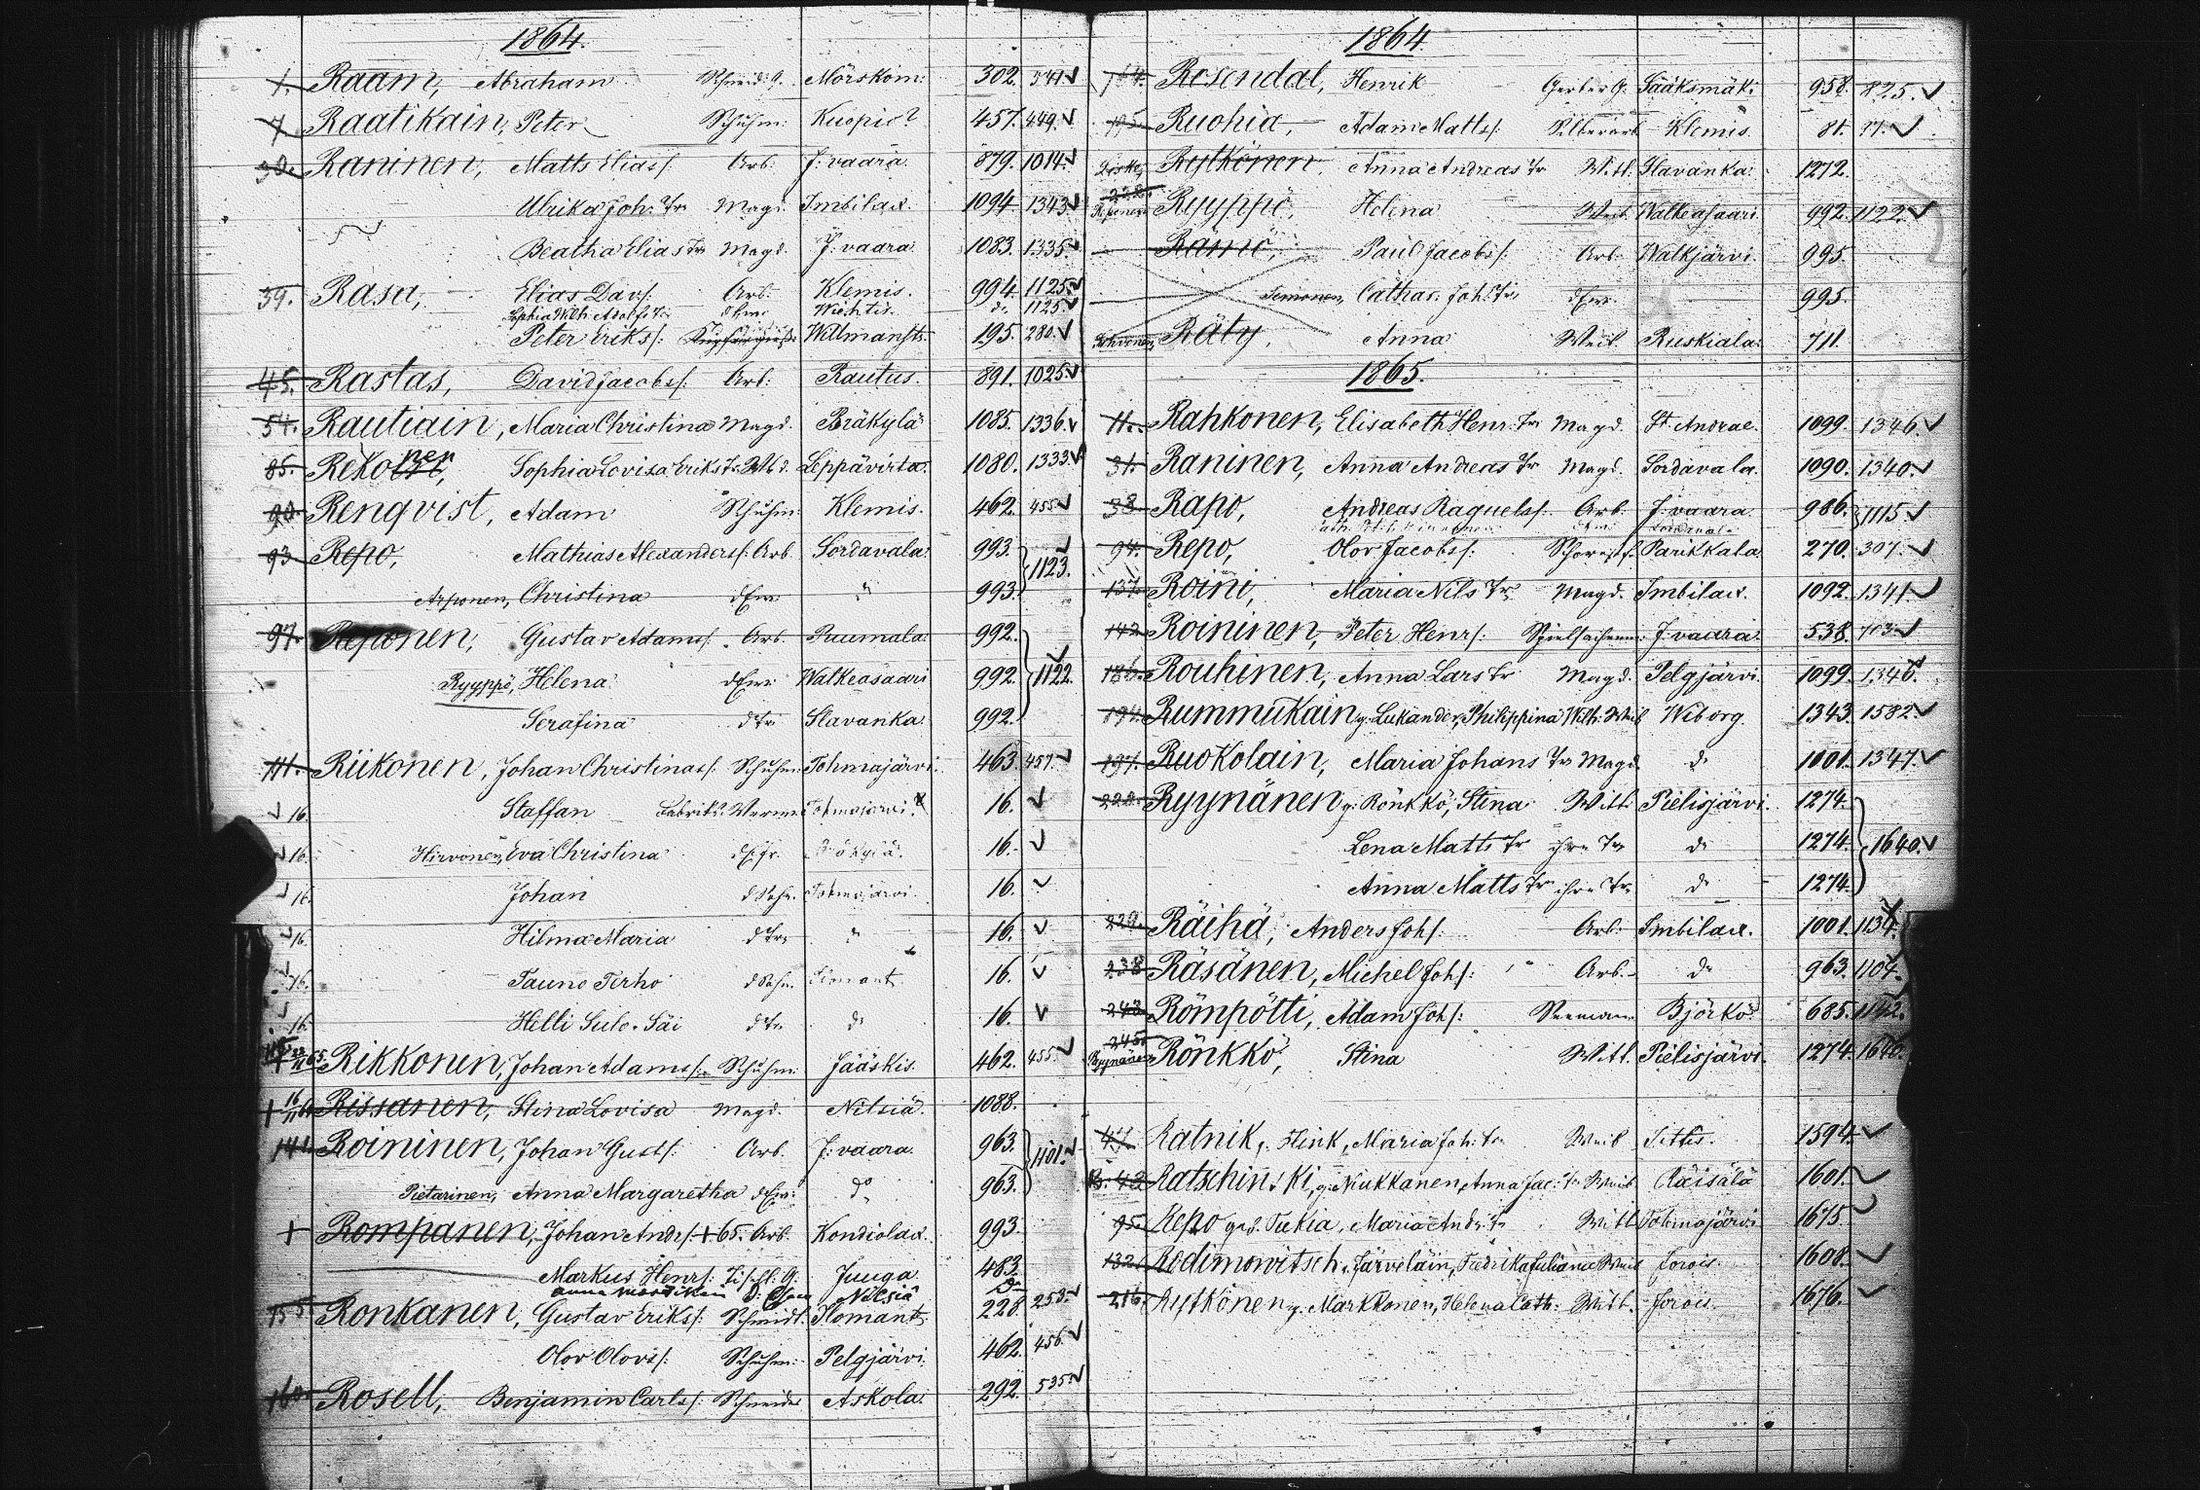 1864.
1. Raam, Abraham Schneid: G. Mörskom: 302. 341
7 Raatikain, Peter Schuhm: Kuopio? 457. 449.
30. Raninen, Matts Elias/: Arb: J: vaara. 879. 1014.
Ulrika Joh: Tr Magd. Imbilax. 1094. 1343
Beatha Elias Tr Magd. J: vaara. 1083. 1335.
39. Rasa, Elias Dav/: Arb: Klemis. 994. 1125.
Sophia Wilh: Adolfs Tr dEwr: Wichtis. do 1125
Peter Eriks/: Willmanstr. 195. 280.
45. Rastas, David Jacobs/: Arb: Rautus. 891. 1025.
54. Rautiain, Maria Christina Magd. Bräkylä 1085. 1336.
85. Rekonen, Sophia Lovisa Eriks Tr Leppävirta. 1080. 1333
90. Renqvist, Adam Schuhm: Klemis. 462. 455
93 Repo, Mathias Alexanders/: Arb Sordavala. 993. 1123.
Arponen, Christina dEwr: do 993.
97. Reponen, Gustav Adams/. Arb Puumala. 992. 1122.
Ryyppö, Helena dEwr: Walkeasaari 992.
Serafina dTr Slavanka. 992.
111. Riikonen, Johan Christinas/: Schuhm: Tohmajärvi. 463. 457.
16. Staffan Tohmajärvi. 16.
16. Hirvonen, Eva Christina 16.
16. Johan dSohn. Tohmajärvi. 16.
16. Hilma Maria dTr do 16.
16. Tauno Terho dSohn. Ilomants 16.
16. Helli Sulo-Säi dTr do 16.
Rikkonen, Johan Adams/: Schuhm: Jääskis. 462. 455.
Rissanen, Stina Lovisa Magd. Nilsiä. 1088.
141 Roininen, Johan Gusts/: Arb. J: vaara. 963. 1101.
Pietarinen, Anna Margaretha dEwr: do 963.
+ Rompanen, Johan Ands/. + 65. Arb. Kondiolax. 993.
Markus Henrs/: Tischl: G. Juuga 483.
Anna Nilsiä do
155 Ronkanen, Gustav Eriks/: Schmidt. Ilomants 228. 253.
Olov Olovs/: Schuhm: Pelgjärvi. 462. 456.
160. Rosell, Benjamin Carls/: Schneider Askola. 292. 535.
1864.
164. Rosendal, Henrik Gerber G. Sääksmäki 958. 825.
195. Ruohia, Adam Matts/: Klemis. 81. 77.
Rytkönen, Anna Andreas Tr Witt. Slavanka. 1272.
228. Reponen Ryyppö, Helena Weib Walkeasaari. 992. 1122.
Rämö, Paul Jacobs/: Arb: Walkjärvi. 995.
Simonen, Cathar: Joh: Tr dEwr: 995.
Räty, Anna Weib Ruskiala. 711.
1865.
11. Rahkonen, Elisabeth Henr: Tr Magd. St. Andrae. 1099. 1346.
31. Raninen, Anna Andreas Tr Magd. Sordavala. 1090. 1340.
38. Rapo, Andreas Raquels/: Arb. J: vaara. 986. 1115.
94. Repo, Olov Jacobs/: Parikkala. 270. 307.
137. Roini, Maria Nils Tr Magd. Imbilax. 1092. 1341.
142 Roininen, Peter Henrs/: J: vaara. 538. 703.
186. Rouhinen, Anna Lars Tr Magd. Pelgjärvi. 1099. 1346.
194. Rummukain, g: Lukander, Philippina Wilh: Weib Wiborg. 1343. 1582.
197. Ruokolain, Maria Johans Tr Magd. do 1001. 1347.
222. Ryynänen, g: Rönkkö, Stina Witt. Pielisjärvi. 1274. 1640.
Lena Matts Tr ihre Tr do 1274.
Anna Matts Tr ihre Tr do 1274.
229. Räihä, Anders Joh/: Arb: Imbilax. 1001. 1134.
238 Räsänen, Michel Joh/: Arb. do 963. 1104.
243. Römpötti, Adam Joh/: Seemann Björkö. 685. 1142.
245. Ryynänen Rönkkö, Stina Witt. Pielisjärvi. 1274. 1640.
41. Ratnik, Flink, Maria Joh: Tr Weib 1594.
42 Ratschinski, g: Nukkanen, Anna Jac: Tr Weib Räisälä 1601.
95. Repo geb. Tukia, Maria Ands Tr Witt Tohmajärvi 1675
132. Rodimowitsch, Järveläin, Fredrika Juliana Weib Jorois. 1608.
216. Rytkönen g. Markkanen, Helena Cath: Witt. Jorois. 1676.